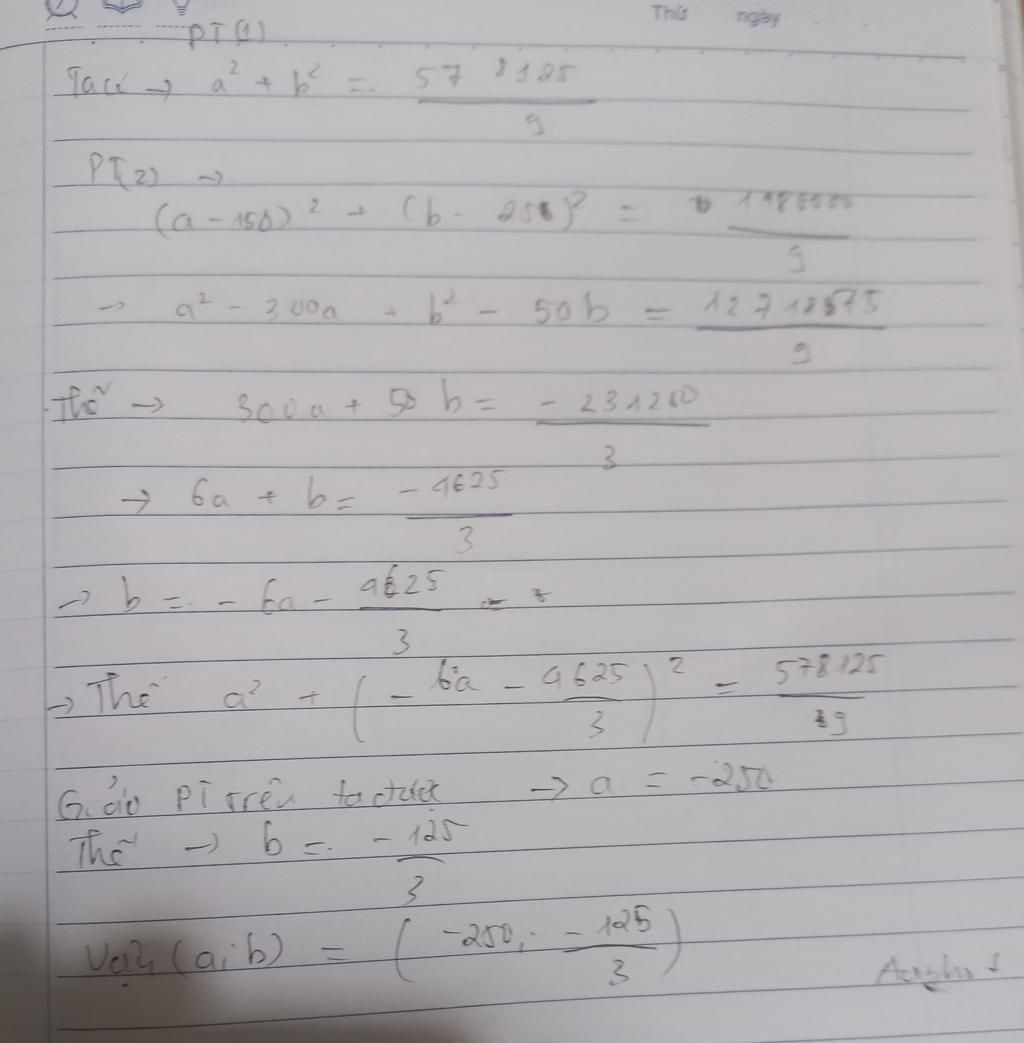 Thứ ngày
PT(1)
Ta có → a² + b² = 578125/9
PT(2) →
(a - 150)² + (b - 25)² =  /9
→ a² - 300a + b² - 50b = /9
Thế → 300a + 50b = -231250/3
→ 6a + b = -4625/3
→ b = -6a - 4625/3
→ Thế a² + (-6a - 4625/3)² = 578125/9
Giải PT trên ta được → a = -250
Thế → b = -125/3
Vậy (a; b) = (-250; -125/3)